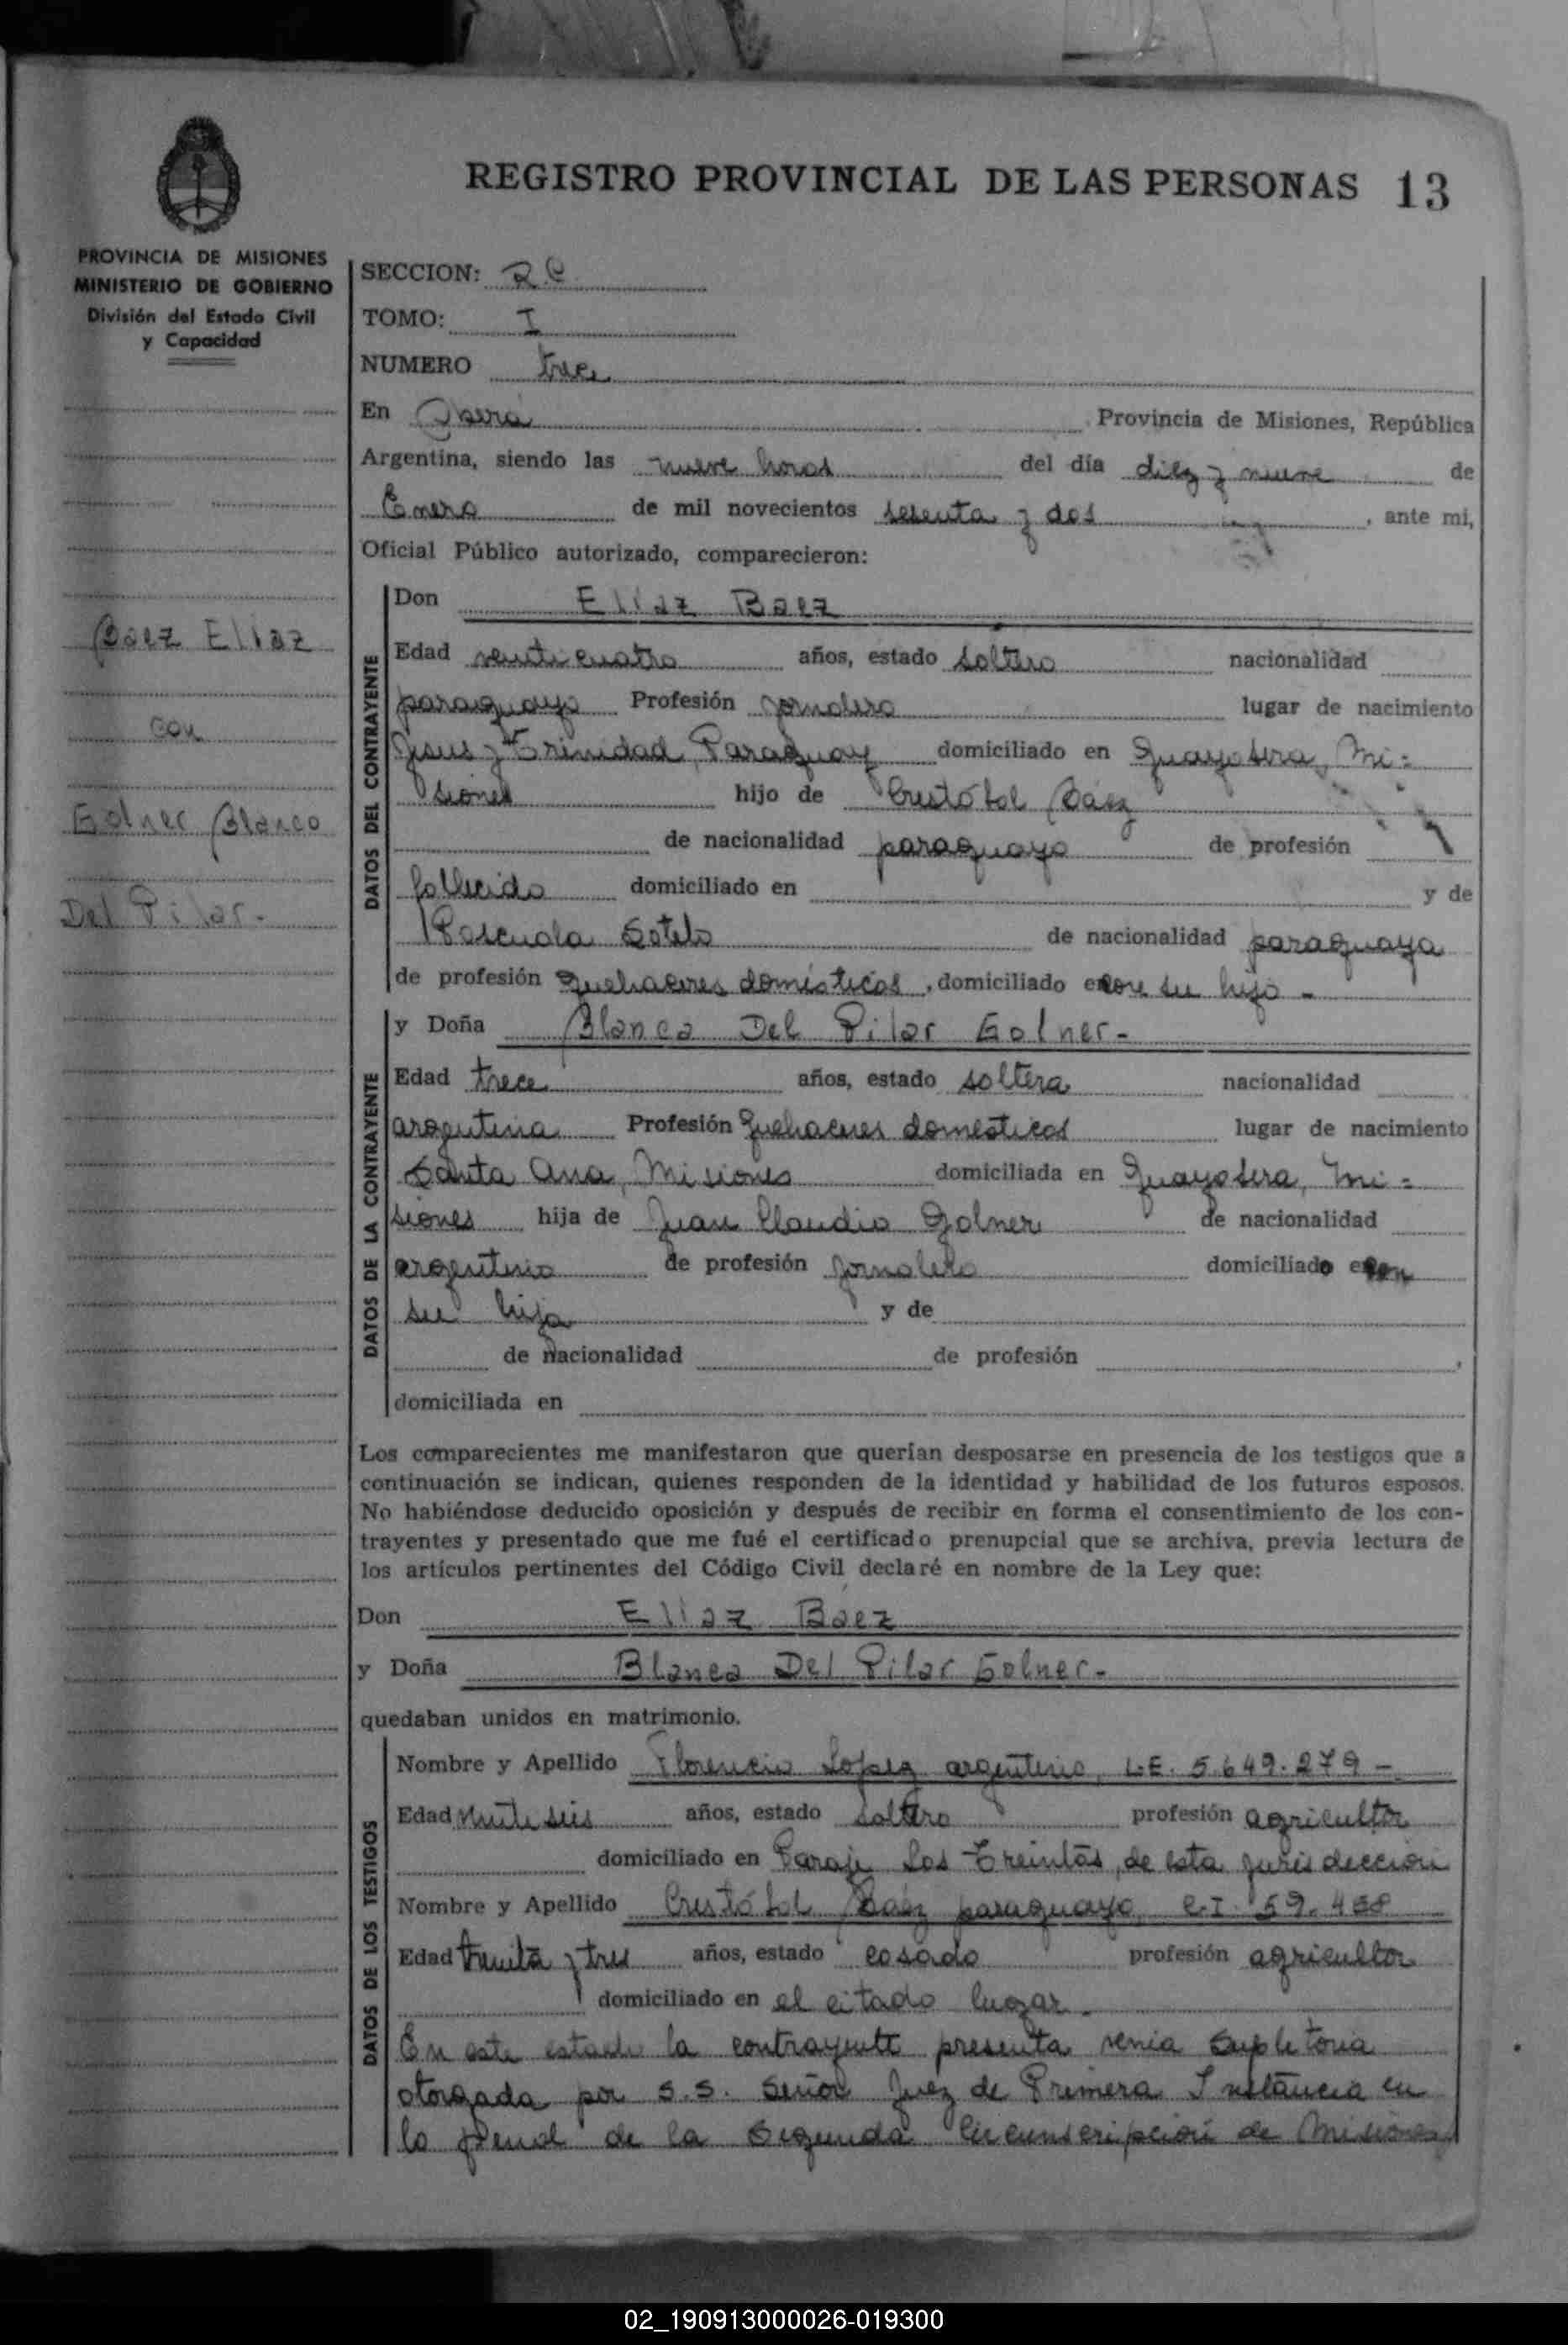 REGISTRO PROVINCIAL DE LAS PERSONAS 13
PROVINCIA DE MISIONES
MINISTERIO DE GOBIERNO
División del Estado Civil
y Capacidad
Báez Eliaz
con
Golner Blanca
Del Pilar.-
SECCION:
TOMO: I
NUMERO trece
En Oberá Provincia de Misiones, República
Argentina, siendo las nueve horas del día diez y nueve de
Enero de mil novecientos setenta y dos, ante mi,
Oficial Público autorizado, comparecieron:
DATOS DEL CONTRAYENTE
Don Eliaz Baez
Edad veinticuatro años, estado soltero nacionalidad
paraguayo Profesión jornalero lugar de nacimiento
Jesus y Trinidad, Paraguay domiciliado en Guayabera, Mi-
siones hijo de Cristóbal Báez
de nacionalidad paraguayo de profesión
fallecido domiciliado en y de
Pascuala Sotelo de nacionalidad paraguaya
de profesión quehaceres domésticos, domiciliado con su hijo -
DATOS DE LA CONTRAYENTE
y Doña Blanca Del Pilar Golner-
Edad trece años, estado soltera nacionalidad
argentina Profesión quehaceres domésticos lugar de nacimiento
Santa Ana, Misiones domiciliada en Guayabera, Mi-
siones hija de Juan Claudio Golner de nacionalidad
argentino de profesión jornalero domiciliado con
su hija y de
de nacionalidad de profesión ,
domiciliada en
Los comparecientes me manifestaron que querían desposarse en presencia de los testigos que a
continuación se indican, quienes responden de la identidad y habilidad de los futuros esposos.
No habiéndose deducido oposición y después de recibir en forma el consentimiento de los con-
trayentes y presentado que me fué el certificado prenupcial que se archiva, previa lectura de
los artículos pertinentes del Código Civil declaré en nombre de la Ley que:
Don Eliaz Baez
y Doña Blanca Del Pilar Golner-
quedaban unidos en matrimonio.
DATOS DE LOS TESTIGOS
Nombre y Apellido Florencio Lopez argentino, L.E. 5.649.279 -
Edad veinte seis años, estado soltero profesión agricultor
domiciliado en Paraje Los Treintas, de esta jurisdiccion
Nombre y Apellido Cristóbal Báez paraguayo C.I. 59.458
Edad treinta y tres años, estado casado profesión agricultor
domiciliado en el citado lugar.
En este estado la contrayente presenta venia supletoria
otorgada por S.S. Señor Juez de Primera Instancia en
lo Penal de la Segunda Circunscripción de Misiones
02_190913000026-019300